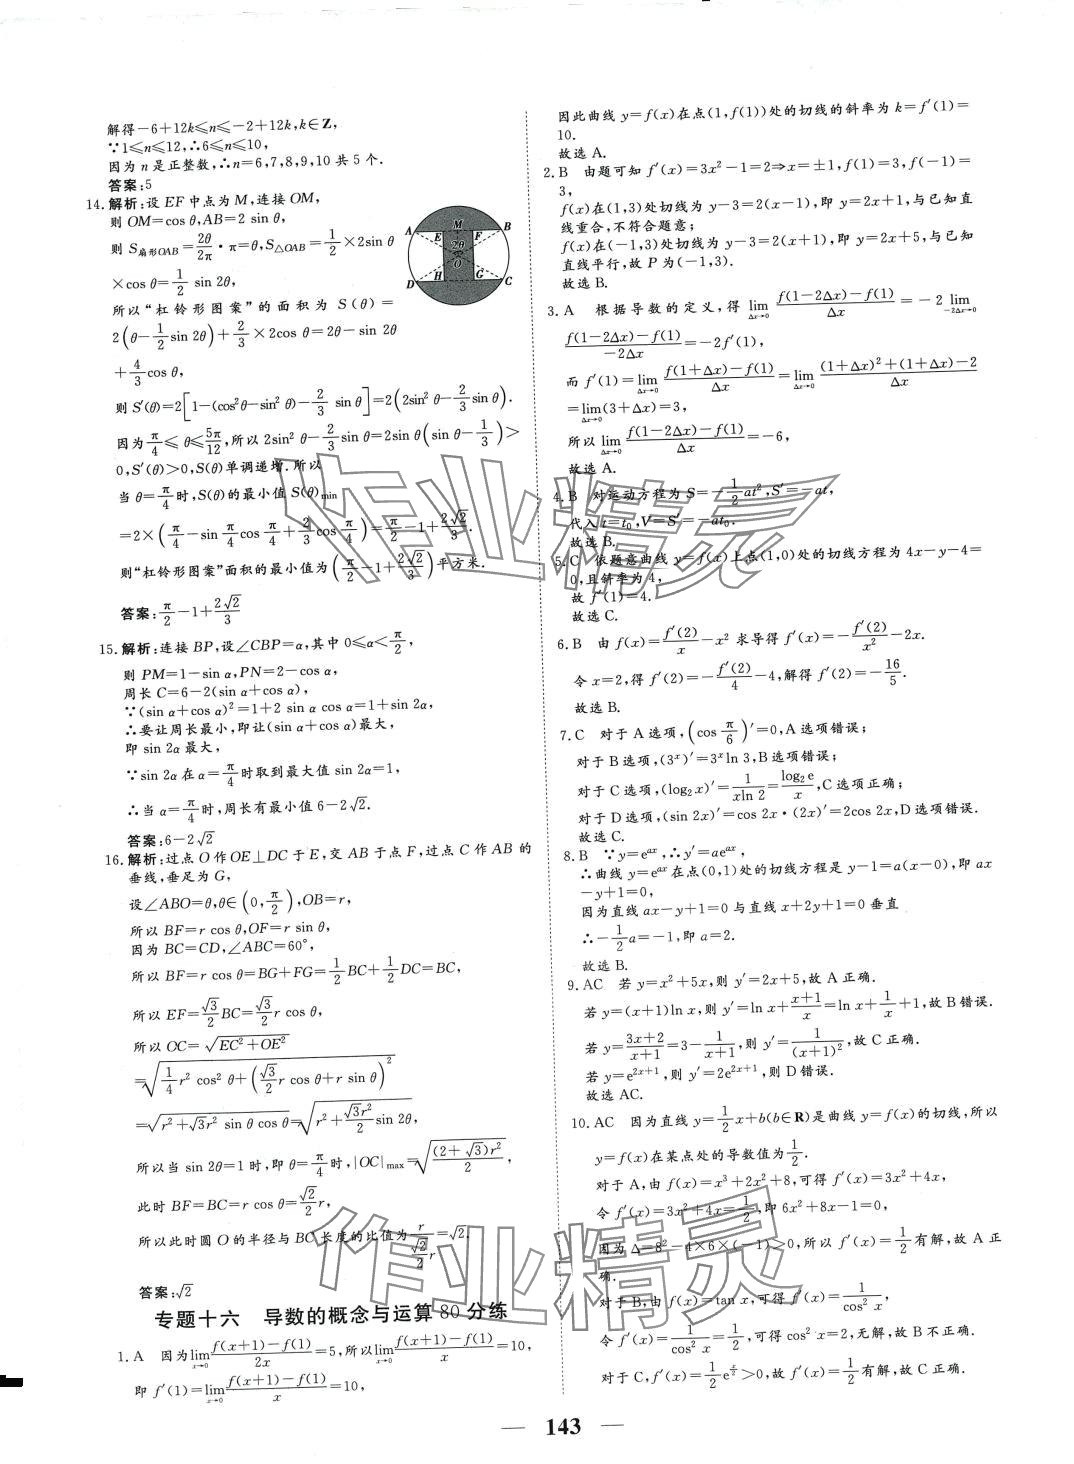 解得－6＋12k≤n≤－2＋12k,k∈Z,
∵1≤n≤12,∴6≤n≤10,
因为 n 是正整数,∴n=6,7,8,9,10 共 5 个.
答案:5
14.解析:设 EF 中点为 M,连接 OM,
则 OM=cos θ,AB=2 sin θ,
则 S扇形OAB=2θ/2π·π=θ,S△OAB=1/2×2sin θ
×cos θ=1/2 sin 2θ.
所以“杠铃形图案”的面积为 S(θ)=
2(θ-1/2sin 2θ)+2/3×2cos θ=2θ-sin 2θ
+4/3cos θ,
则 S′(θ)=2[1-(cos²θ-sin² θ)-2/3 sin θ]=2(2sin² θ-2/3sin θ).
因为π/4≤θ≤5π/12,所以 2sin² θ-2/3sin θ=2sin θ(sin θ-1/3)>
0,S′(θ)>0,S(θ)单调递增.所以
当 θ=π/4时,S(θ)的最小值 S(θ)min
=2×(π/4-sin π/4cos π/4+2/3cos π/4)=π/2-1+2√2/3.
则“杠铃形图案”面积的最小值为(π/2-1+2√2/3)平方米.
答案:π/2-1+2√2/3
A E M F B
2θ
O
D H G C
15.解析:连接 BP,设∠CBP=α,其中 0≤α<π/2,
则 PM=1-sin α,PN=2-cos α,
周长 C=6-2(sin α+cos α),
∵(sin α+cos α)²=1+2 sin α cos α=1+sin 2α,
∴要让周长最小,即让(sin α+cos α)最大,
即 sin 2α 最大,
∵sin 2α 在 α=π/4时取到最大值 sin 2α=1,
∴当 α=π/4时,周长有最小值 6-2√2.
答案:6-2√2
16.解析:过点 O 作 OE⊥DC 于 E,交 AB 于点 F,过点 C 作 AB 的
垂线,垂足为 G,
设∠ABO=θ,θ∈(0,π/2),OB=r,
所以 BF=r cos θ,OF=r sin θ,
因为 BC=CD,∠ABC=60°,
所以 BF=r cos θ=BG+FG=1/2BC+1/2DC=BC,
所以 EF=√3/2BC=√3/2r cos θ,
所以 OC=√(EC²+OE²)
=√(1/4r² cos² θ+(√3/2r cos θ+r sin θ)²)
=√(r²+√3r² sin θ cos θ)=√(r²+√3r²/2sin 2θ),
所以当 sin 2θ=1 时,即 θ=π/4时,|OC|max=√((2+√3)r²/2),
此时 BF=BC=r cos θ=√2/2r,
所以此时圆 O 的半径与 BC 长度的比值为r/(√2/2r)=√2.
答案:√2
专题十六 导数的概念与运算 80 分练
1.A 因为lim x→0 f(x+1)-f(1)/2x=5,所以lim x→0 f(x+1)-f(1)/x=10,
即 f′(1)=lim x→0 f(x+1)-f(1)/x=10,
因此曲线 y=f(x)在点(1,f(1))处的切线的斜率为 k=f′(1)=
10.
故选 A.
2.B 由题可知 f′(x)=3x²-1=2⇒x=±1,f(1)=3,f(-1)=
3,
f(x)在(1,3)处切线为 y-3=2(x-1),即 y=2x+1,与已知直
线重合,不符合题意;
f(x)在(-1,3)处切线为 y-3=2(x+1),即 y=2x+5,与已知
直线平行,故 P 为(-1,3).
故选 B.
3.A 根据导数的定义,得lim Δx→0 f(1-2Δx)-f(1)/Δx=-2lim -2Δx→0
f(1-2Δx)-f(1)/-2Δx=-2f′(1),
而 f′(1)=lim Δx→0 f(1+Δx)-f(1)/Δx=lim Δx→0 (1+Δx)²+(1+Δx)-2/Δx
=lim Δx→0(3+Δx)=3,
所以lim Δx→0 f(1-2Δx)-f(1)/Δx=-6,
故选 A.
4.B 对运动方程为 S=-1/2at²,S′=-at,
代入 t=t₀,V=S′=-at₀.
故选 B.
5.C 依题意曲线 y=f(x)上点(1,0)处的切线方程为 4x-y-4=
0,且斜率为 4,
故 f′(1)=4.
故选 C.
6.B 由 f(x)=f′(2)/x-x² 求导得 f′(x)=-f′(2)/x²-2x.
令 x=2,得 f′(2)=-f′(2)/4-4,解得 f′(2)=-16/5.
故选 B.
7.C 对于 A 选项,(cos π/6)′=0,A 选项错误;
对于 B 选项,(3ˣ)′=3ˣln 3,B 选项错误;
对于 C 选项,(log₂x)′=1/xln 2=log₂e/x,C 选项正确;
对于 D 选项,(sin 2x)′=cos 2x·(2x)′=2cos 2x,D 选项错误.
故选 C.
8.B ∵y=e^ax,∴y′=ae^ax,
∴曲线 y=e^ax在点(0,1)处的切线方程是 y-1=a(x-0),即 ax
-y+1=0,
因为直线 ax-y+1=0 与直线 x+2y+1=0 垂直
∴-1/2a=-1,即 a=2.
故选 B.
9.AC 若 y=x²+5x,则 y′=2x+5,故 A 正确.
若 y=(x+1)ln x,则 y′=ln x+x+1/x=ln x+1/x+1,故 B 错误.
若 y=3x+2/x+1=3-1/x+1,则 y′=1/(x+1)²,故 C 正确.
若 y=e^2x+1,则 y′=2e^2x+1,则 D 错误.
故选 AC.
10.AC 因为直线 y=1/2x+b(b∈R)是曲线 y=f(x)的切线,所以
y=f(x)在某点处的导数值为1/2.
对于 A,由 f(x)=x³+2x²+8,可得 f′(x)=3x²+4x,
令 f′(x)=3x²+4x=1/2,即 6x²+8x-1=0,
因为 Δ=8²-4×6×(-1)>0,所以 f′(x)=1/2有解,故 A 正
确.
对于 B,由 f(x)=tan x,可得 f′(x)=1/cos² x,
令 f′(x)=1/cos² x=1/2,可得 cos² x=2,无解,故 B 不正确.
对于 C,f′(x)=1/2e^(x/2)>0,故 f′(x)=1/2有解,故 C 正确.
— 143 —
作业精灵
作业精灵